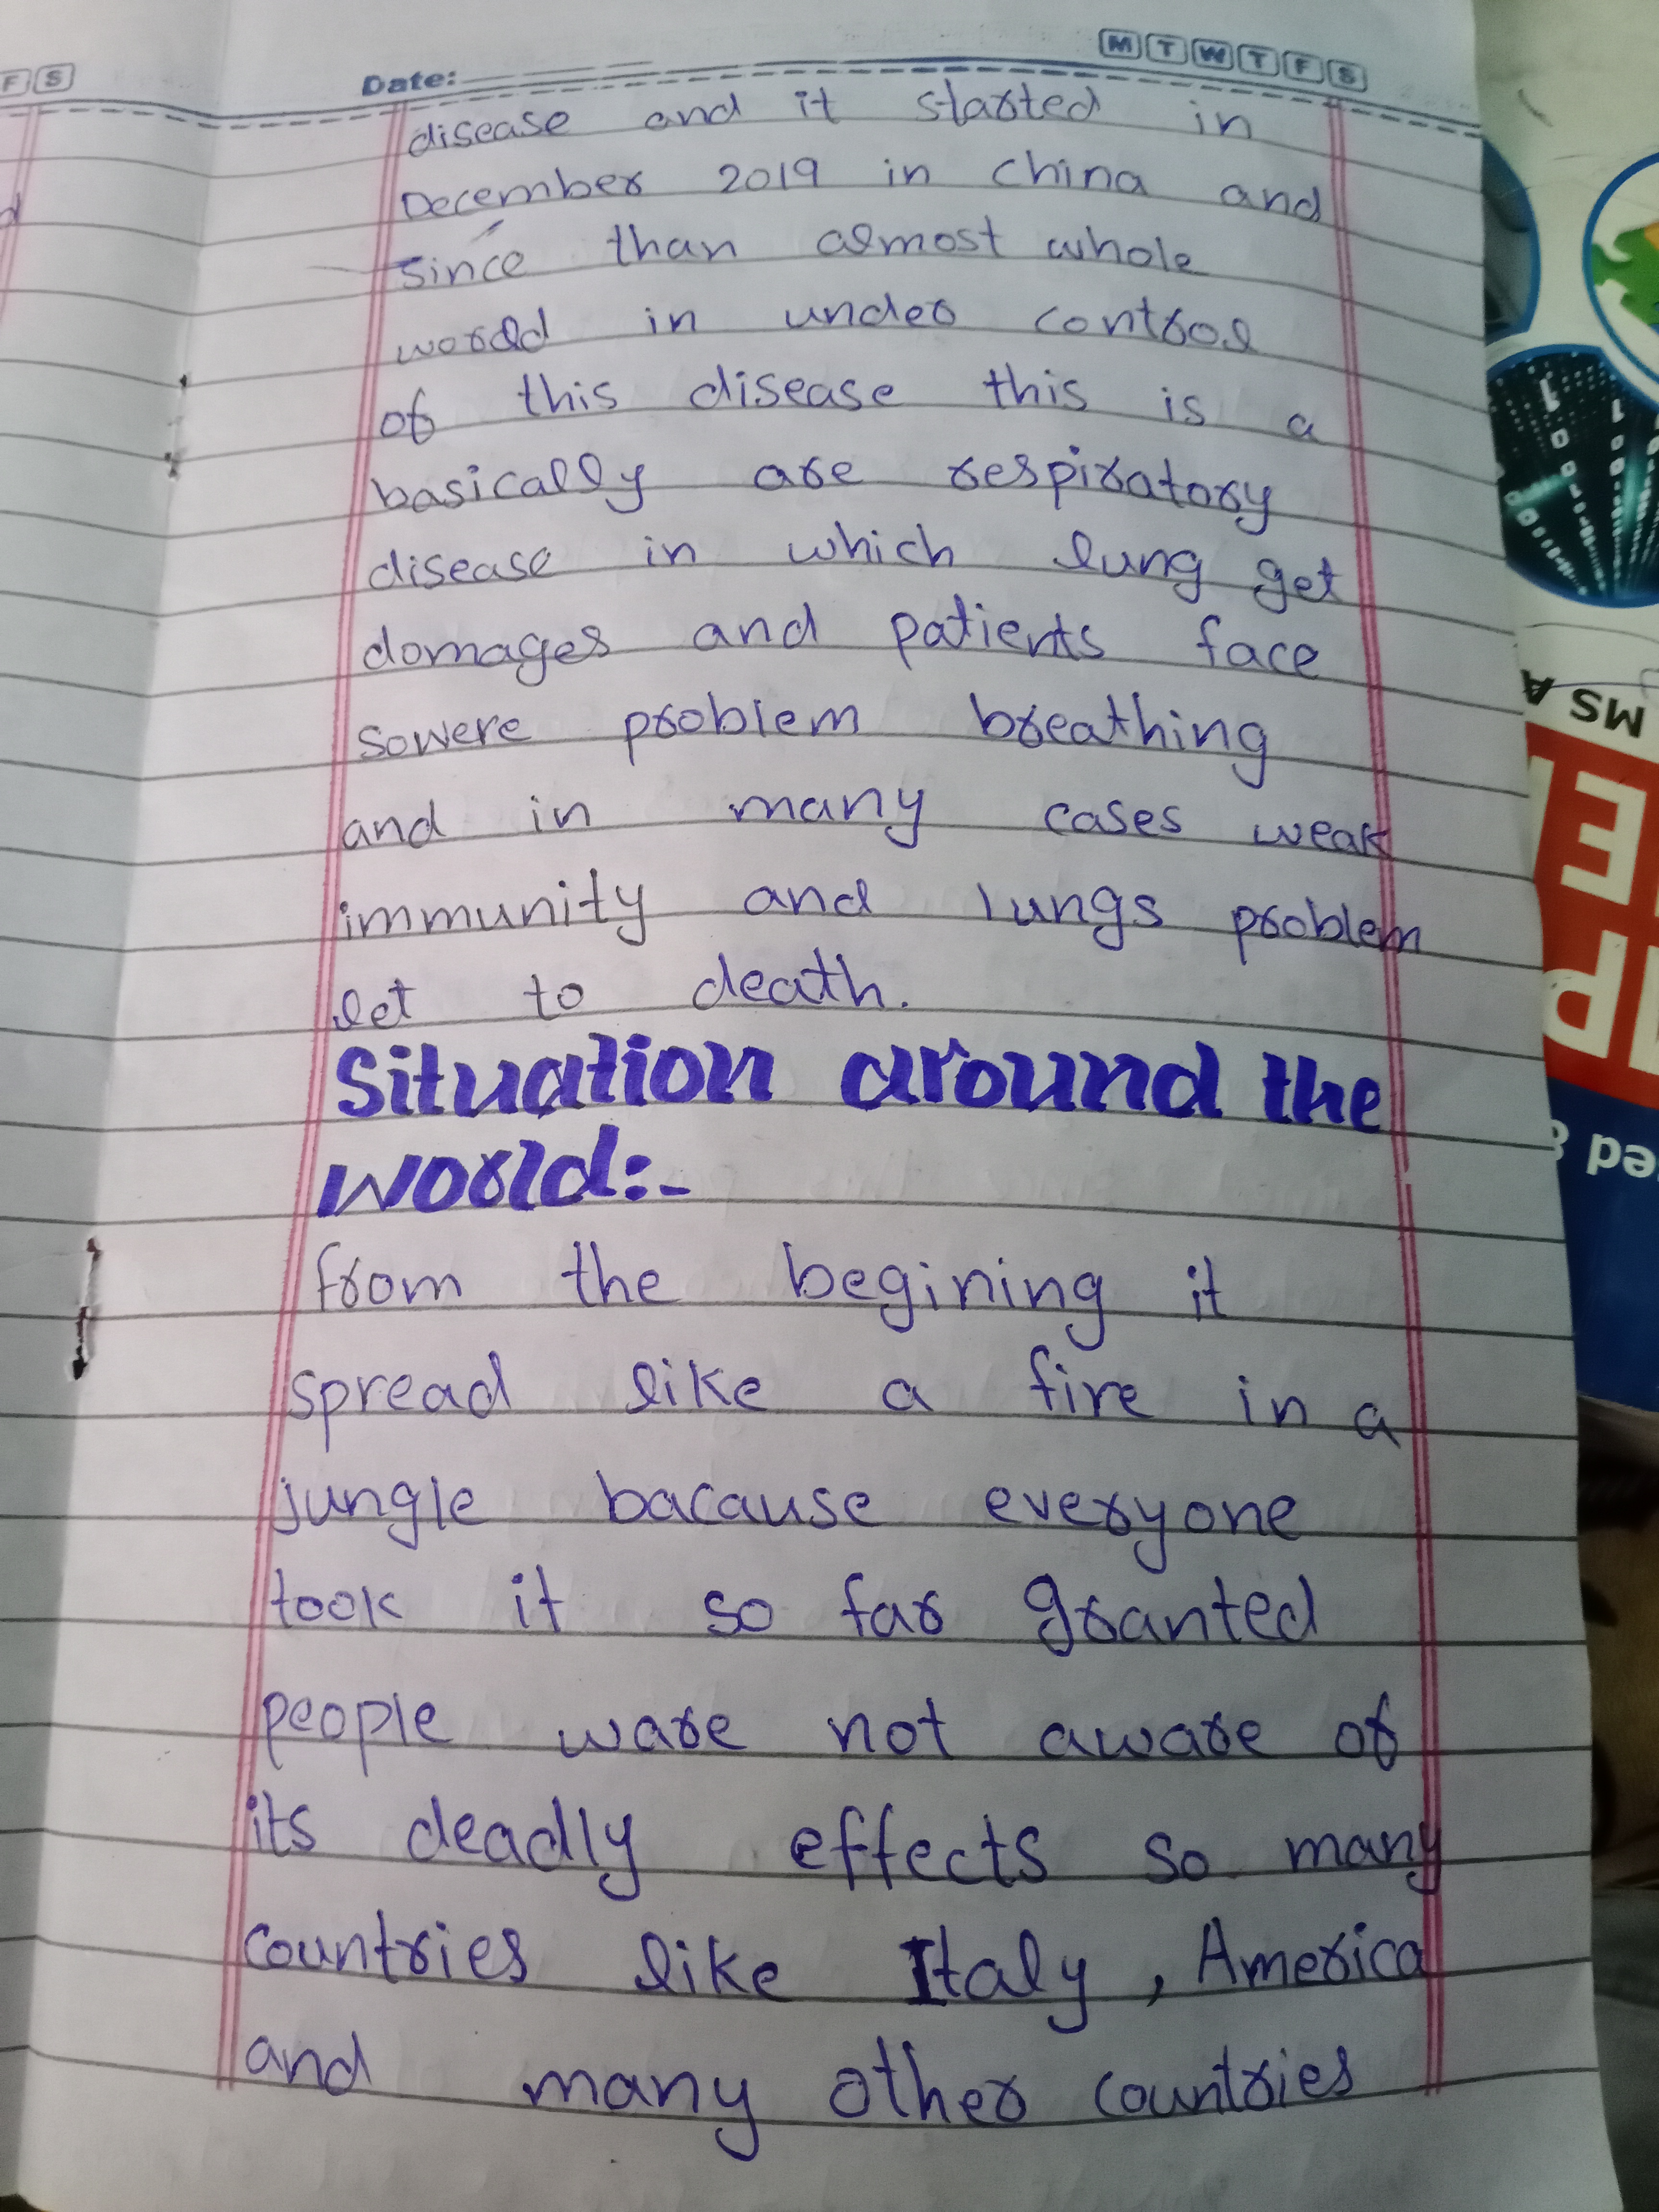 F S
Date:
M T W T F S
disease and it started in
December 2019 in china and
since than almost whole
world in under control
of this disease this is a
basically are respiratory
disease in which lung get
domages and patients face
sowere problem breathing
and in many cases weak
immunity and lungs problem
let to death.
Situation around the
world:-
from the begining it
spread like a fire in a
jungle bacause everyone
took it so far granted
people ware not aware of
its deadly effects so many
countries like Italy, America
and many other countries
d
MS A